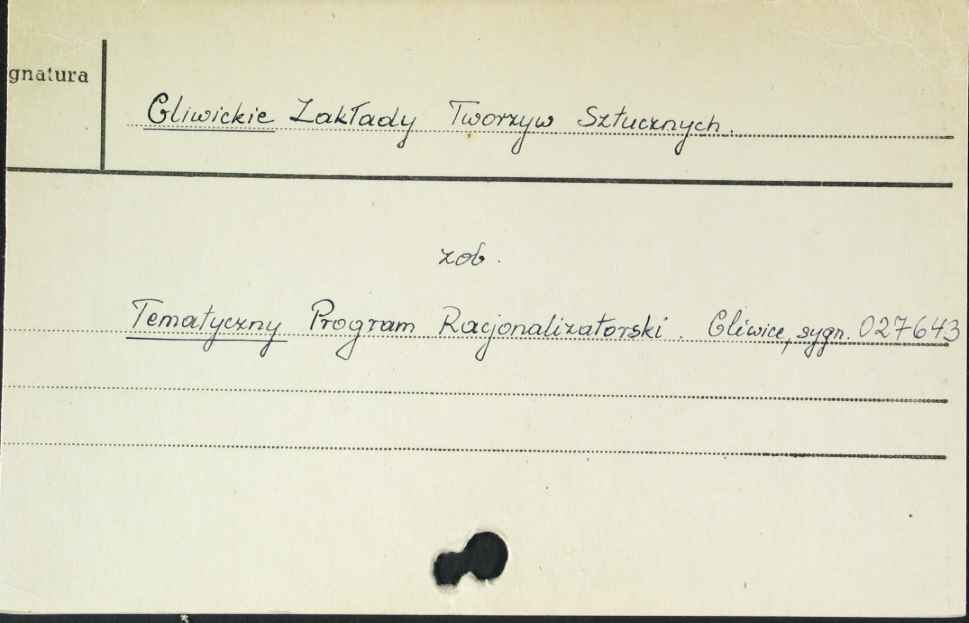 gnatura
Gliwickie Zakłady Tworzyw Sztucznych.
zob.
Tematyczny Program Racjonalizatorski. Gliwice, sygn. 027643